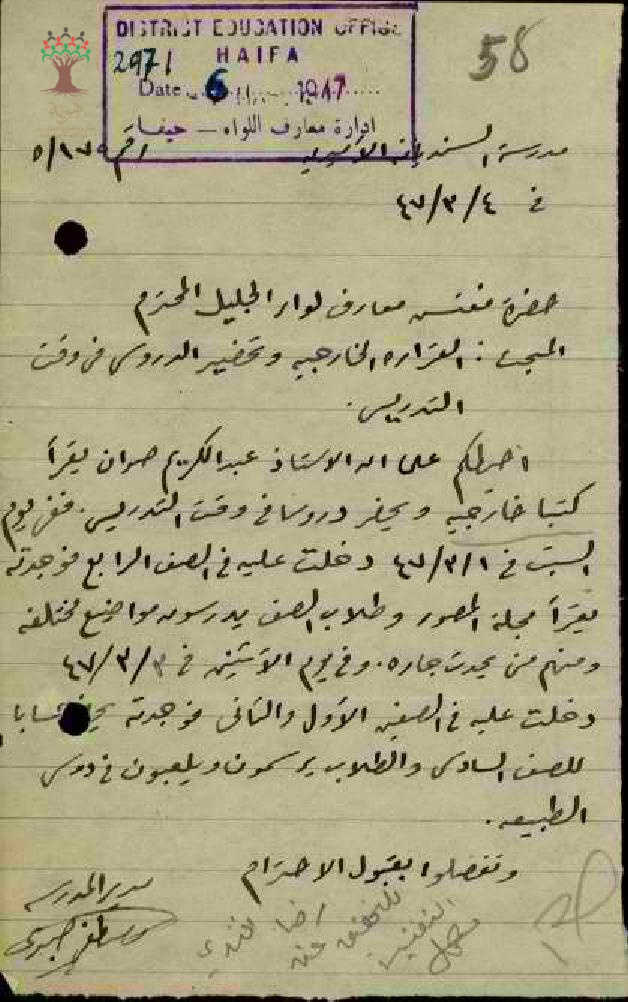 DISTRICT EDUCATION OFFICE
58
HAIFA
2971
Date 6 1947
ادارة معارف اللواء - حيفا
مدرسة السنديانة الاميرية
رقم ٥/١٧٥
في ٤٧/٣/٤
حضرة مفتش معارف لواء الجليل المحترم
المبحث : القراءه الخارجيه وتحضير الدروس في وقت
التدريس .
احيطكم علما ان الاستاذ عبدالكريم يقرأ
كتبا خارجيه ويحضر دروسا في وقت التدريس . ففي يوم
السبت في ٤٧/٣/١ دخلت عليه في الصف الرابع فوجدته
يقرأ مجلة المصور وطلاب الصف يدرسون مواضيع مختلفه
ومنهم من يحدث جاره . وفي يوم الاثنين في ٤٧/٣/٣
دخلت عليه في الصفين الأول والثاني فوجدته حسابا
للصف السادس والطلاب يرسمون ويلعبون في دروس
الطبيعه .
وتفضلوا بقبول الاحترام
مدير المدرسه
مصطفى صبري